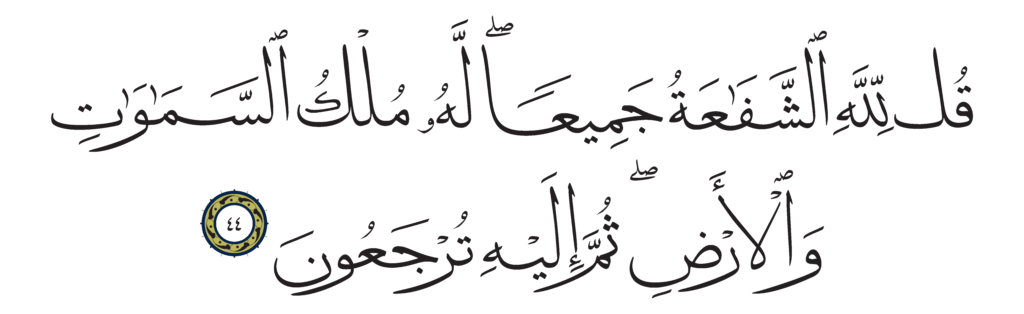 قُل لِّلَّهِ ٱلشَّفَٰعَةُ جَمِيعًاۖ لَّهُۥ مُلْكُ ٱلسَّمَٰوَٰتِ
وَٱلْأَرْضِۖ ثُمَّ إِلَيْهِ تُرْجَعُونَ ٤٤